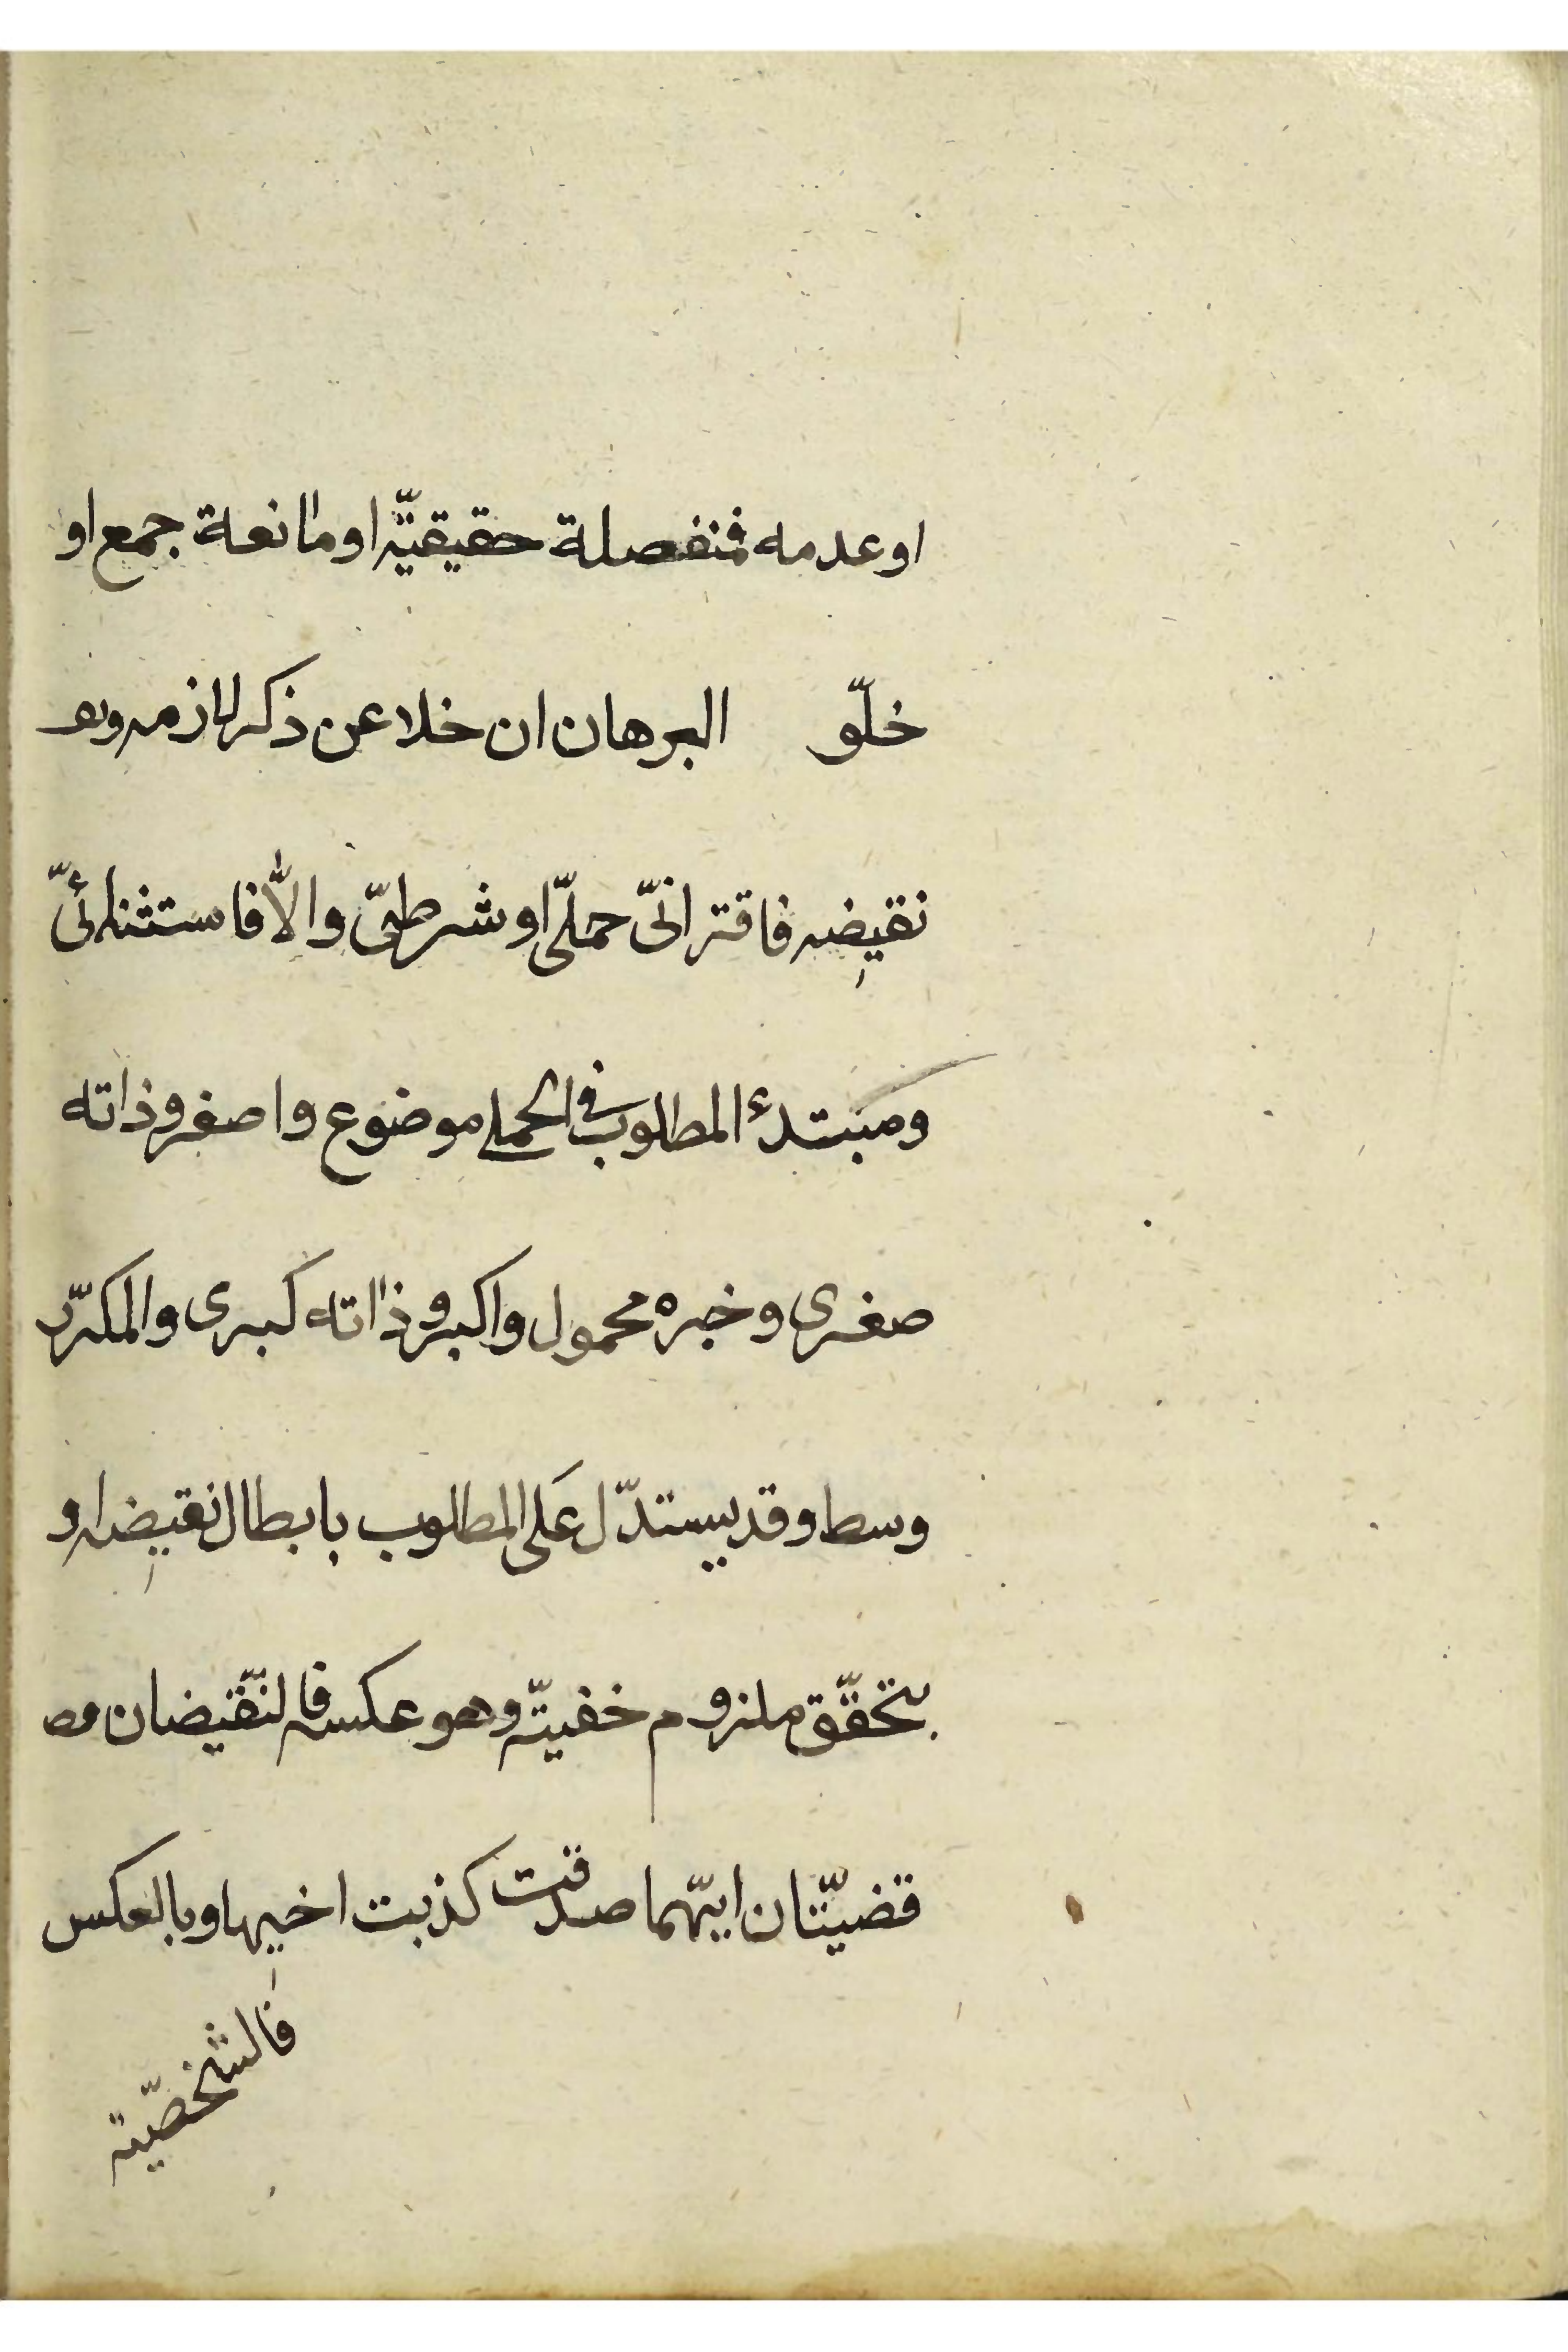 او عدمه فمنفصلة حقيقيّة او مانعة جمع او
خلّو البرهان ان خلا عن ذكر لازمه و
نقيضه فاقترانیّ حملیّ او شرطیّ والّا فاستثنائیّ
ومبتدء المطلوب فی الحملی موضوع واصغر وذاته
صغری وخبره محمول واكبر وذاته كبری والمكرّر
وسط وقد يستدّل عَلی المطلوب بابطال نقيضه و
بتحقّق ملزوم خفيّة وهو عكسه فالنّقيضان
قضيّتان ايّهما صدقت كذبت اخيها وبالعكس
فالشخصّية